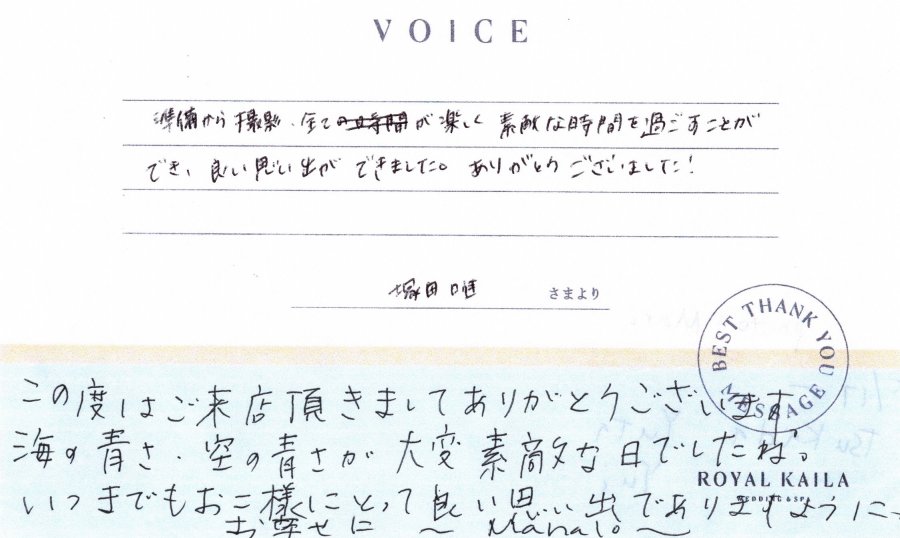 VOICE
準備から撮影、全ての時間が楽しく 素敵な時間を過ごすことが
でき、良い思い出が できました。ありがとう ございました!
塚田 唯 さまより
BEST THANK YOU MESSAGE
この度はご来店頂きましてありがとうございます
海の青さ・空の青さが 大変 素敵な日でしたね。
ROYAL KAILA
WEDDING & SPA
いつまでもお二人様にとって良い思い出でありますように〜
お幸せに 〜 Mahalo 〜